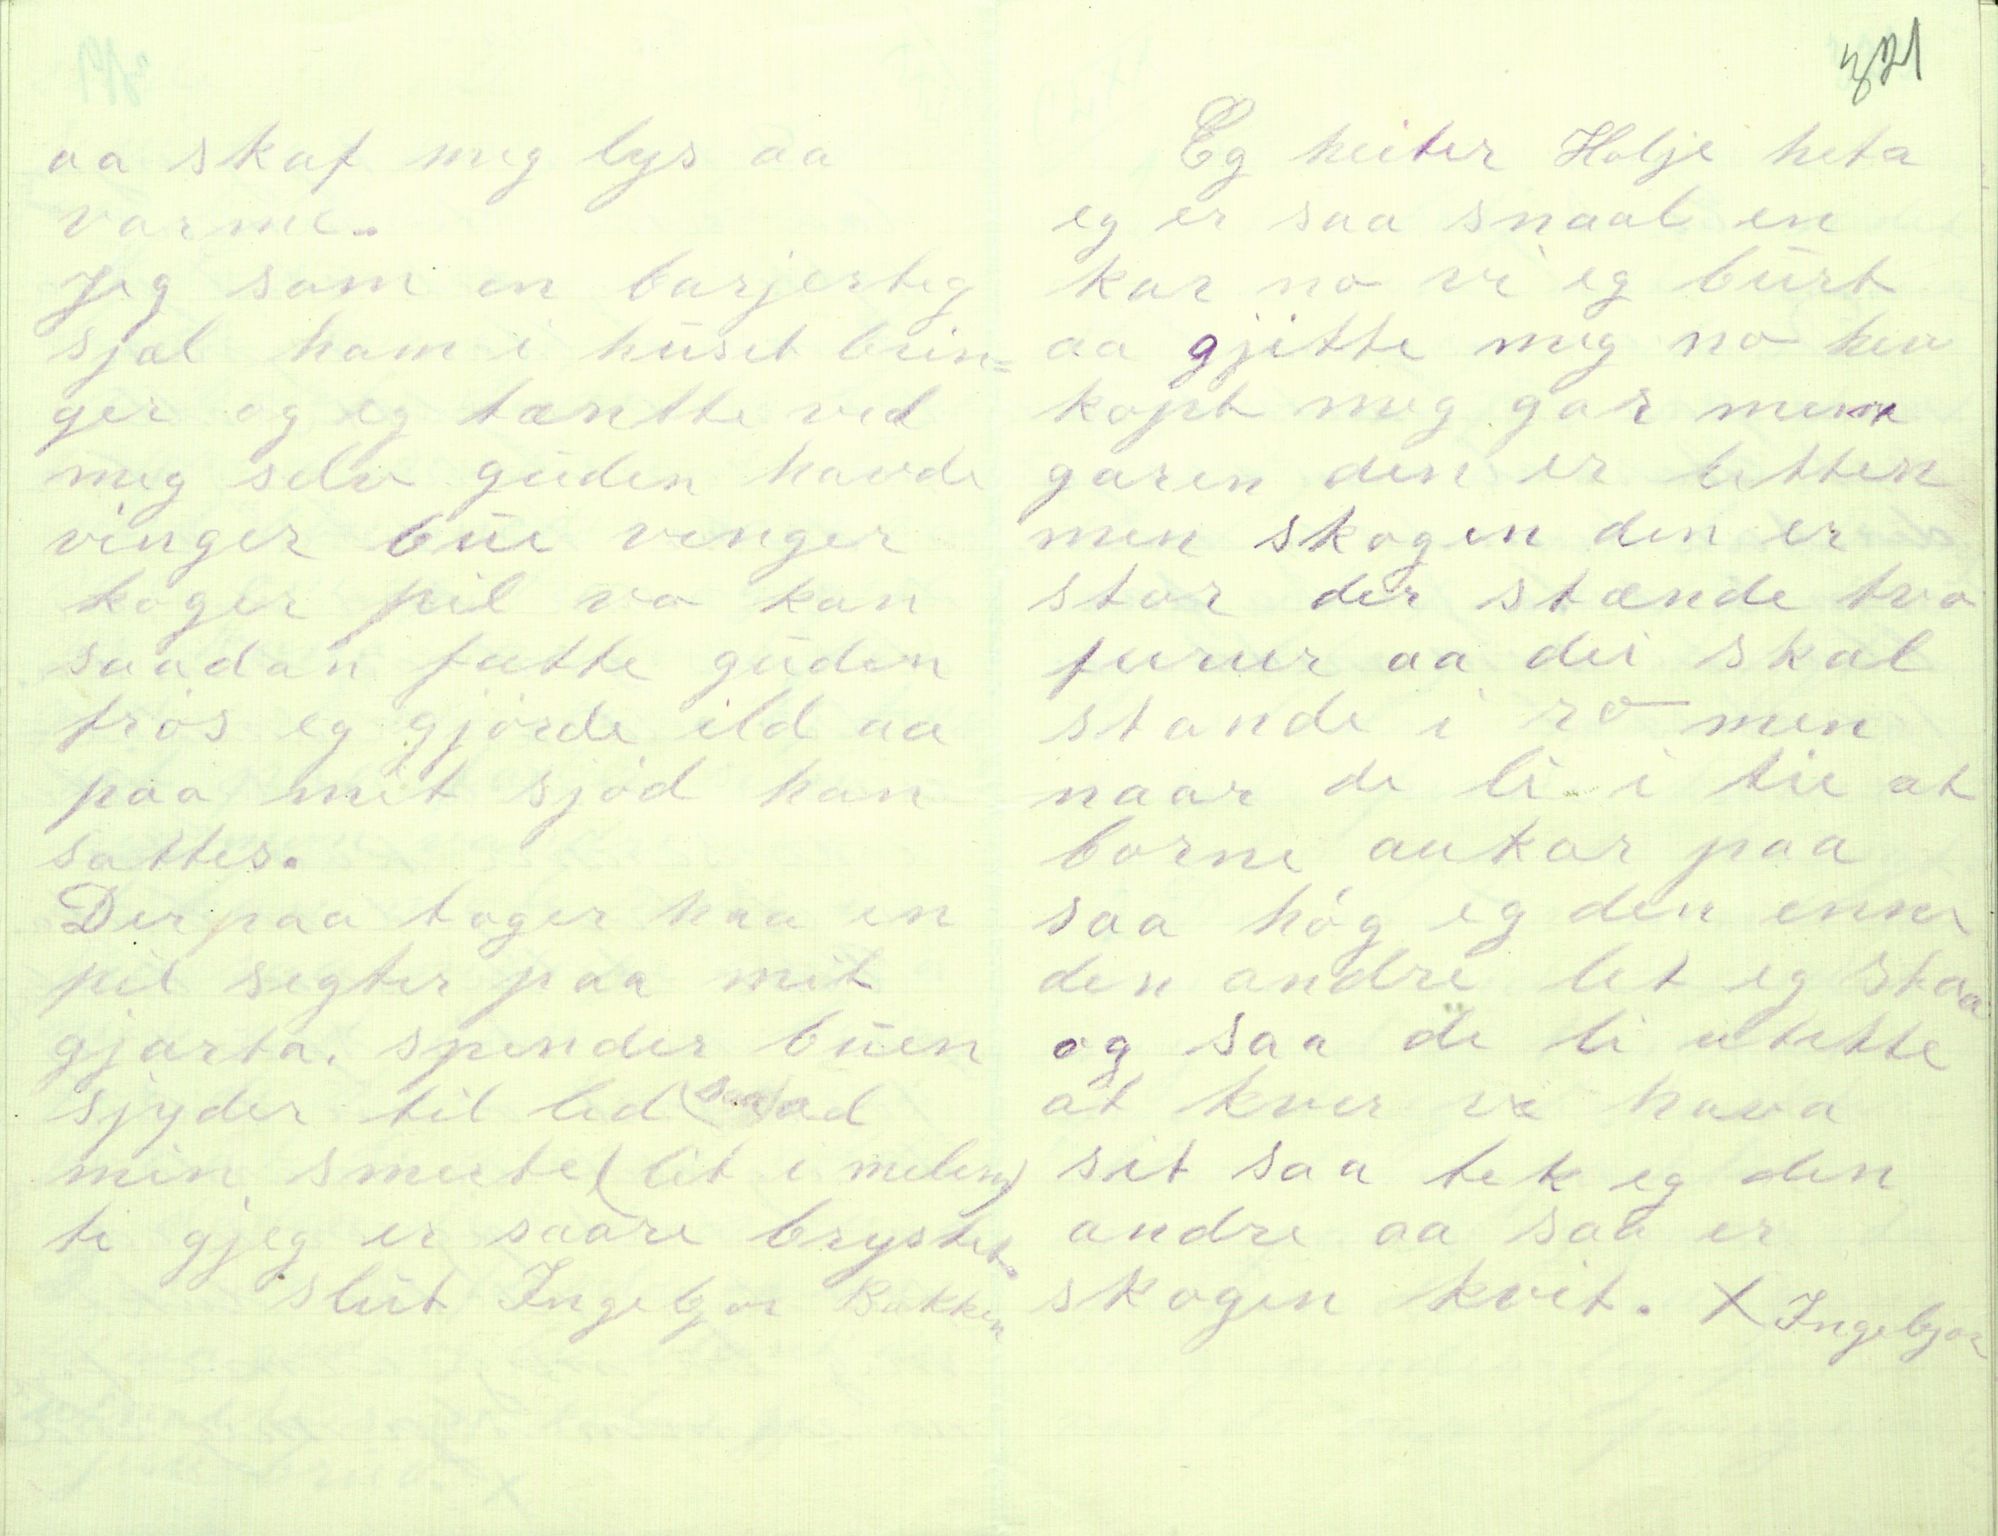 aa skaf meg lys aa
varme.
Jeg som en barjertig
sjæl ham i huset brin=
ger og eg tænkte ved
meg selv guden havde
vinger bue venger
koger pil va kan
saadan fatte guden
frøs eg gjorde ild aa
paa mit sjød han
sattes.
Derpaa toger haa en
pil segter paa mit
gjarta. spender buen
sjyder til led (saa) ad
min smerte (lit i melem)
te gjeg er saare brystet.
slut Ingebjor Bakken
321
Eg heiter Holje heta
eg er saa snaal en
kar no vi eg burt
aa gjifte meg no hev
kopt meg gar menn
garen den er litten
men skogen den er
stor der stænde tvo
furur aa dei skal
stande i ro men
naar de li i tie at
borne aukar paa
saa høg eg den enne
den andre let eg staa
og saa de li utette
at kver ve hava
sit saa tek eg den
andre aa saa er
skogen kvit. X Ingebjor